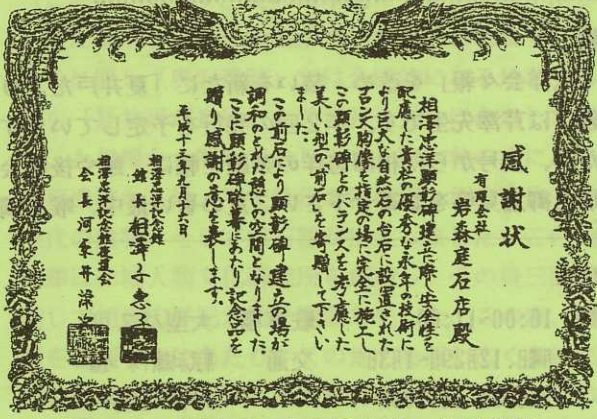 感謝状
有限会社
岩森庭石店殿
相澤忠洋顕彰碑建立に際し安全性を
配慮した貴社の優秀な永年の技術に
より巨大な自然石の台石に設置された
ブロンズ胸像を指定の場に完全に施工し
この顕彰碑とのバランスを考慮した
美しい型の前石をもご寄贈して下さい
ました
この前石により顕彰碑建立の場が
調和のとれた憩いの空間となりました
この顕彰碑除幕にあたり記念品を
贈り感謝の意を表します
相澤忠洋記念館
館長相澤千恵子
相澤忠洋記念館後援会
会長河
16:00